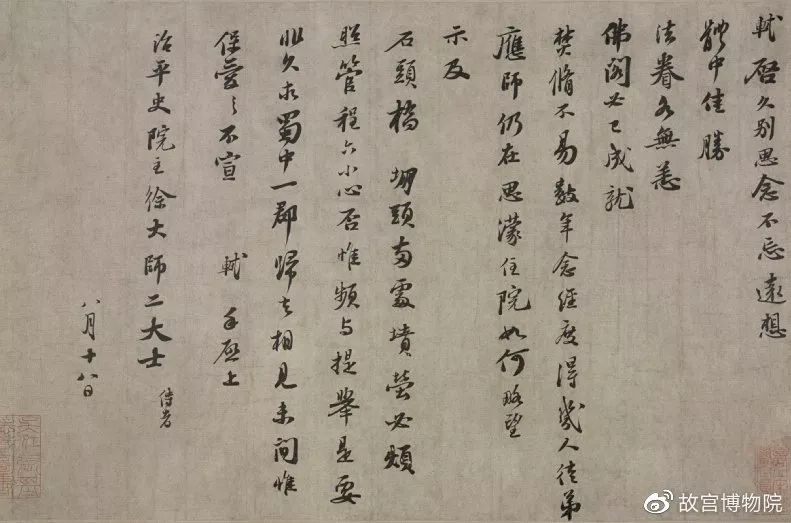 軾啓久别思念不忘遠想
體中佳勝
法眷各無恙
佛閣必已成就
焚脩不易數年念經度得幾人徒弟
應師仍在思濛住院如何略望
示及
石頭橋堋頭兩處墳塋必煩
照管程六小心否惟頻与提舉是要
非久求蜀中一郡歸去相見未間惟
保愛之不宣 軾手啓上
治平史院主徐大師二大士 侍者
八月十八日
故宫博物院